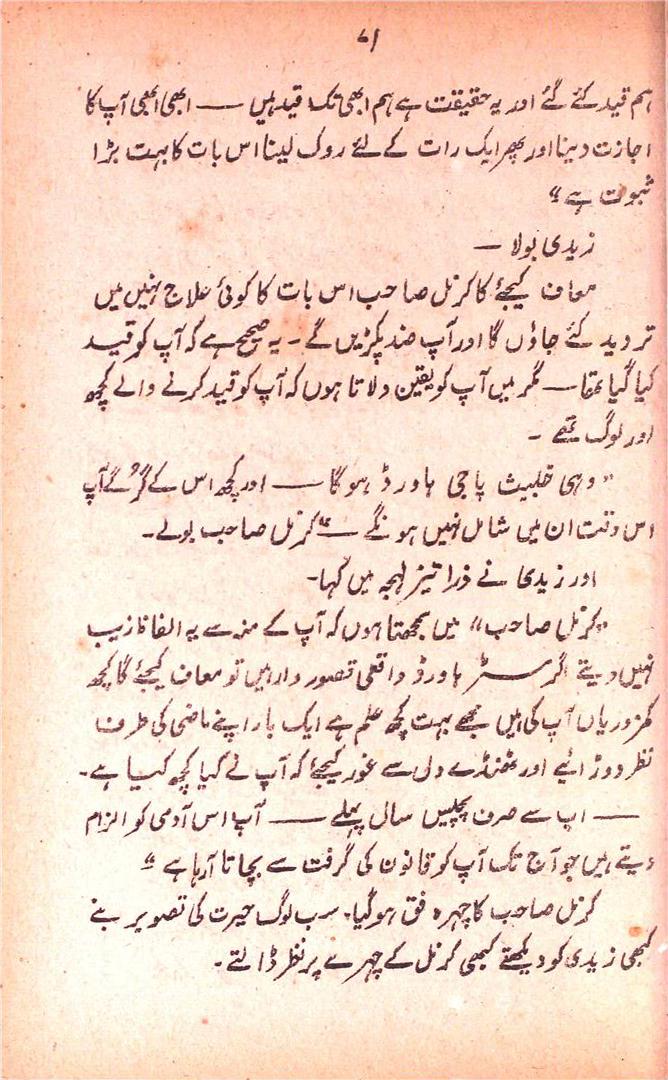 ۷۱
ہم قید کئے گئے اور یہ حقیقت ہے ہم ابھی تک قید ہیں — ابھی ابھی آپ کا
اجازت دینا اور پھر ایک رات کے لئے روک لینا اس بات کا بہت بڑا
ثبوت ہے“
زیدی بولا —
معاف کیجئے گا کرنل صاحب اس بات کا کوئی علاج نہیں میں
تردید کئے جاؤں گا اور آپ ضد پکڑیں گے ۔ یہ صحیح ہے کہ آپ کو قید
کیا گیا تھا — مگر میں آپ کو یقین دلاتا ہوں کہ آپ کو قید کرنے والے کچھ
اور لوگ تھے ۔
”وہی خبیث پاجی ہاورڈ ہوگا — اور کچھ اس کے گُرگے آپ
اس وقت ان میں شامل نہیں ہونگے —“ کرنل صاحب بولے۔
اور زیدی نے ذرا تیز لہجہ میں کہا۔
”کرنل صاحب“ میں سمجھتا ہوں کہ آپ کے منہ سے یہ الفاظ زیب
نہیں دیتے اگر مسٹر ہاورڈ واقعی قصور وار ہیں تو معاف کیجئے گا کچھ
کمزوریاں آپ کی ہیں مجھے بہت کچھ علم ہے ایک بار اپنے ماضی کی طرف
نظر دوڑائیے اور ٹھنڈے دل سے غور کیجئے کہ آپ نے کیا کچھ کیا ہے۔
— اب سے صرف پچیس سال پہلے — آپ اس آدمی کو الزام
دیتے ہیں جو آج تک آپ کو قانون کی گرفت سے بچاتا آرہا ہے“
کرنل صاحب کا چہرہ فق ہوگیا۔ سب لوگ حیرت کی تصویر بنے
کبھی زیدی کو دیکھتے کبھی کرنل کے چہرے پر نظر ڈالتے۔